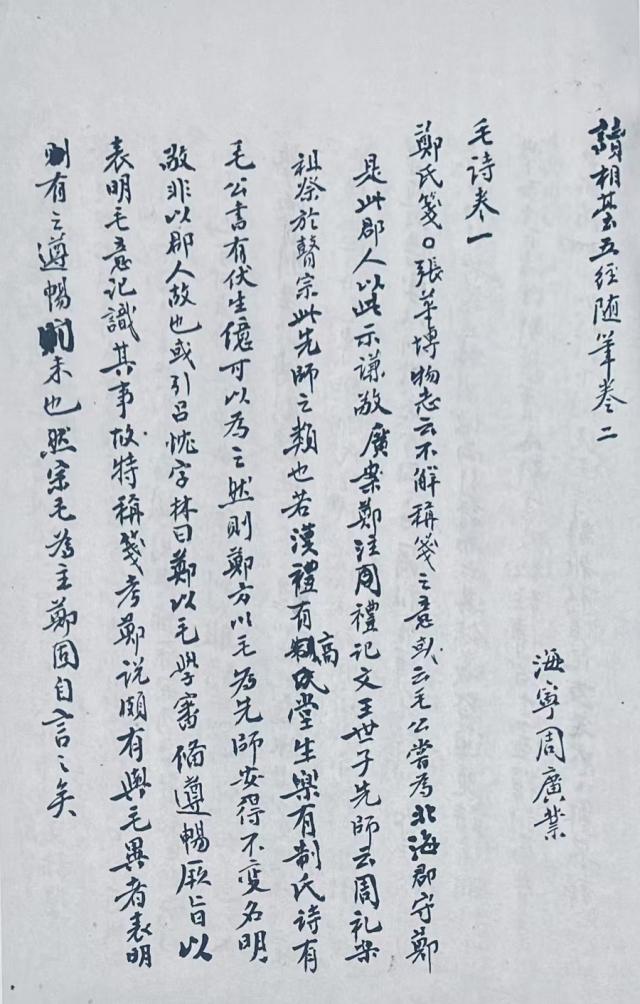 讀相臺五經隨筆卷二
海寧周廣業
毛詩卷一
鄭氏箋○張華博物志云不解稱箋之意或云毛公嘗為北海郡守鄭
是此郡人以此示謙敬廣案鄭注周禮記文王世子先師云周礼樂
祖祭於瞽宗此先師之類也若漢禮有高堂生樂有制氏詩有
毛公書有伏生億可以為之然則鄭方以毛為先師安得不變名明
敬非以郡人故也或引呂忱字林曰鄭以毛學審備遵暢厥旨以
表明毛意记識其事故特稱箋考鄭说頗有與毛異者表明
則有之遵暢則未也然宗毛為主鄭固自言之矣